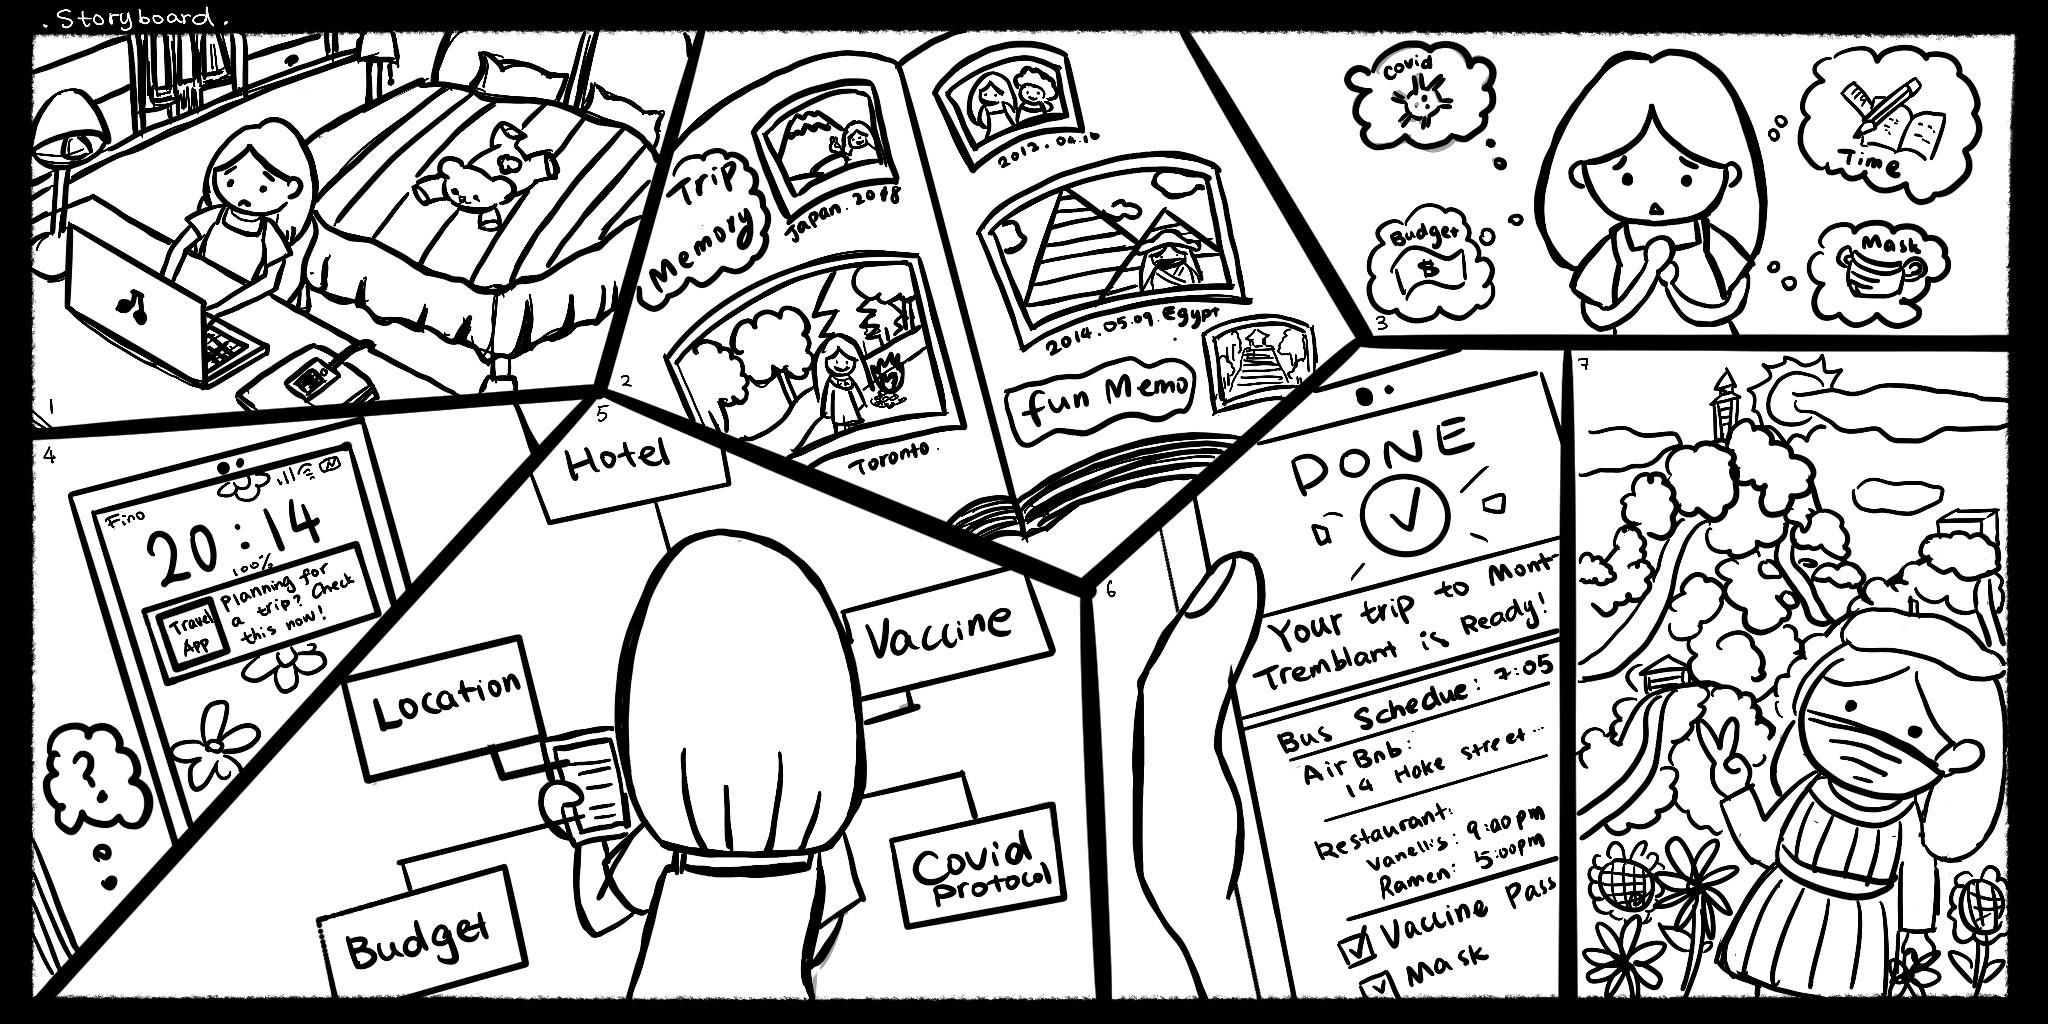 .Storyboard.
1
Trip
Memory
Japan. 2018
Toronto.
2013.04.16
2014.05.09. Egypt
fun Memo
2
Covid
Time
Budget
$
Mask
3
4
Fino
20:14
100%
Travel
App
Planning for
a trip? Check
this now!
?
5
Hotel
Location
Vaccine
Budget
Covid
Protocol
6
DONE
Your trip to Mont
Tremblant is Ready!
Bus Schedue: 7:05
Air Bnb:
14 Hoke street...
Restaurant:
Vanelli's: 9:00pm
Ramen: 5:00pm
Vaccine Pass
Mask
7